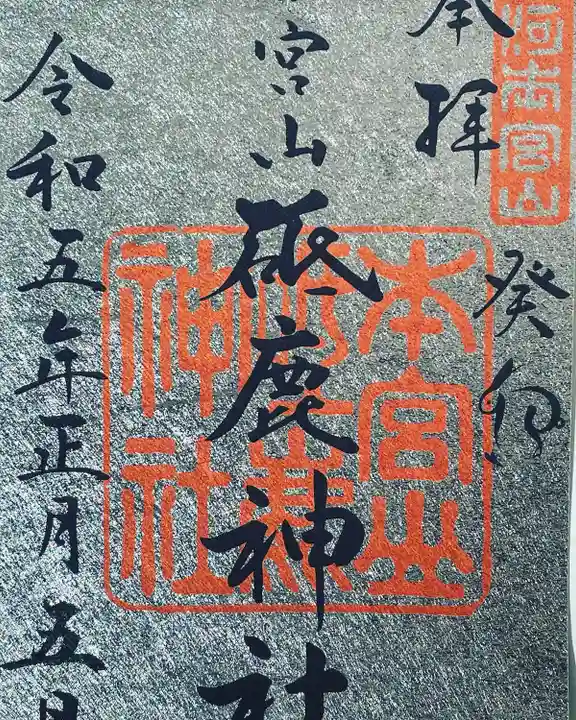 本宮山
奉拝
癸卯
宮山砥鹿神社
本宮山
神社
令和五年正月五日